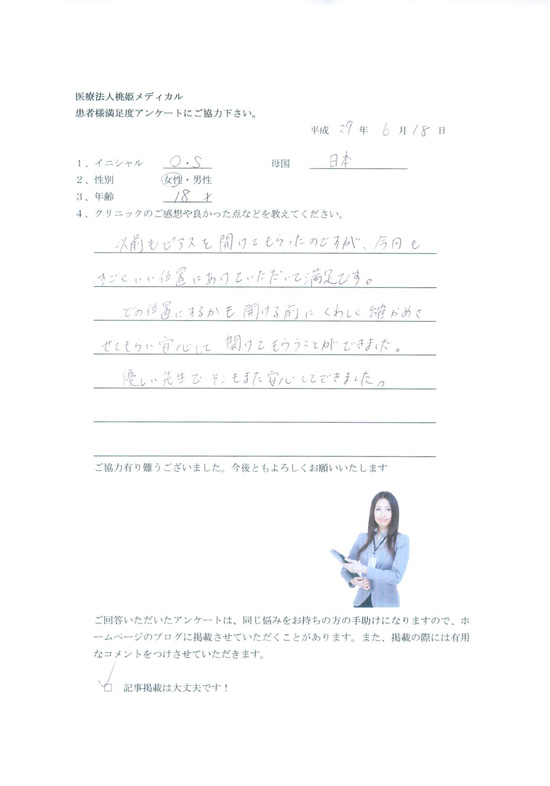 医療法人桃姫メディカル
患者様満足度アンケートにご協力下さい。
平成 29 年 6 月 18 日
1、イニシャル O・S 母国 日本
2、性別 女性・男性
3、年齢 18 才
4、クリニックのご感想や良かった点などを教えてください。
以前もピアスを開けてもらったのですが、今回も
すごくいい位置にあけていただいて満足です。
どの位置にするかも開ける前にくわしく確かめさ
せてもらい安心して開けてもらうことができました。
優しい先生でそこもまた安心してできました。
ご協力有り難うございました。今後ともよろしくお願いいたします
ご回答いただいたアンケートは、同じ悩みをお持ちの方の手助けになりますので、ホ
ームページのブログに掲載させていただくことがあります。また、掲載の際には有用
なコメントをつけさせていただきます。
□ 記事掲載は大丈夫です！